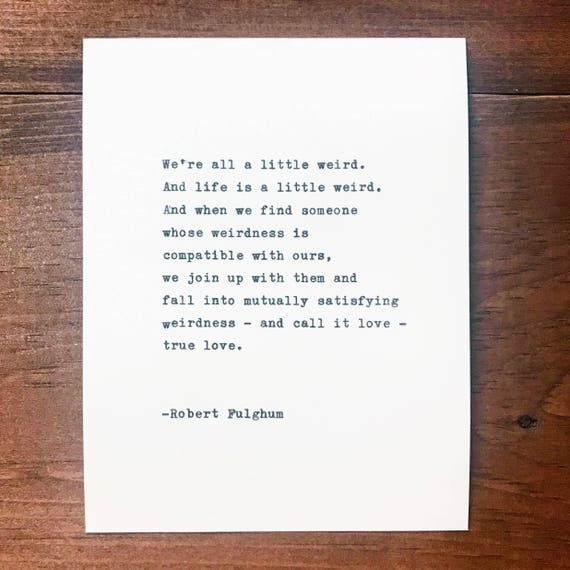 We're all a little weird.
And life is a little weird.
And when we find someone
whose weirdness is
compatible with ours,
we join up with them and
fall into mutually satisfying
weirdness - and call it love -
true love.
-Robert Fulghum